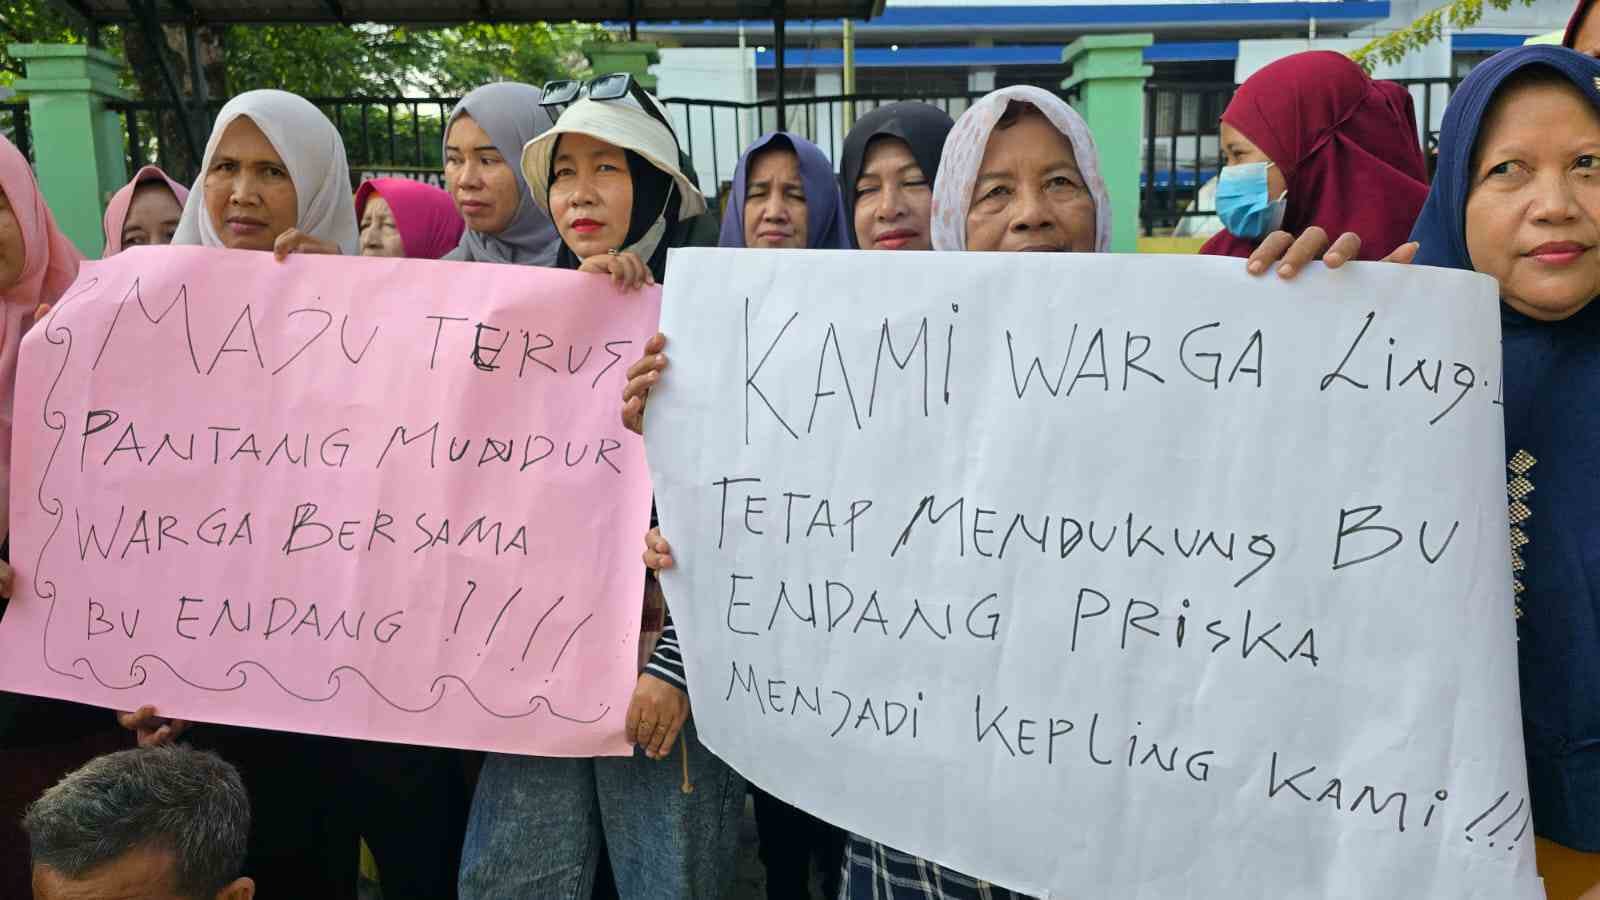 MAJU TERUS
PANTANG MUNDUR
WARGA BERSAMA
BU ENDANG !!!!
KAMI WARGA Ling. I
TETAP MENDUKUNg BU
ENDANG PRiSKA
MENJADi KEPLiNG KAMi !!!